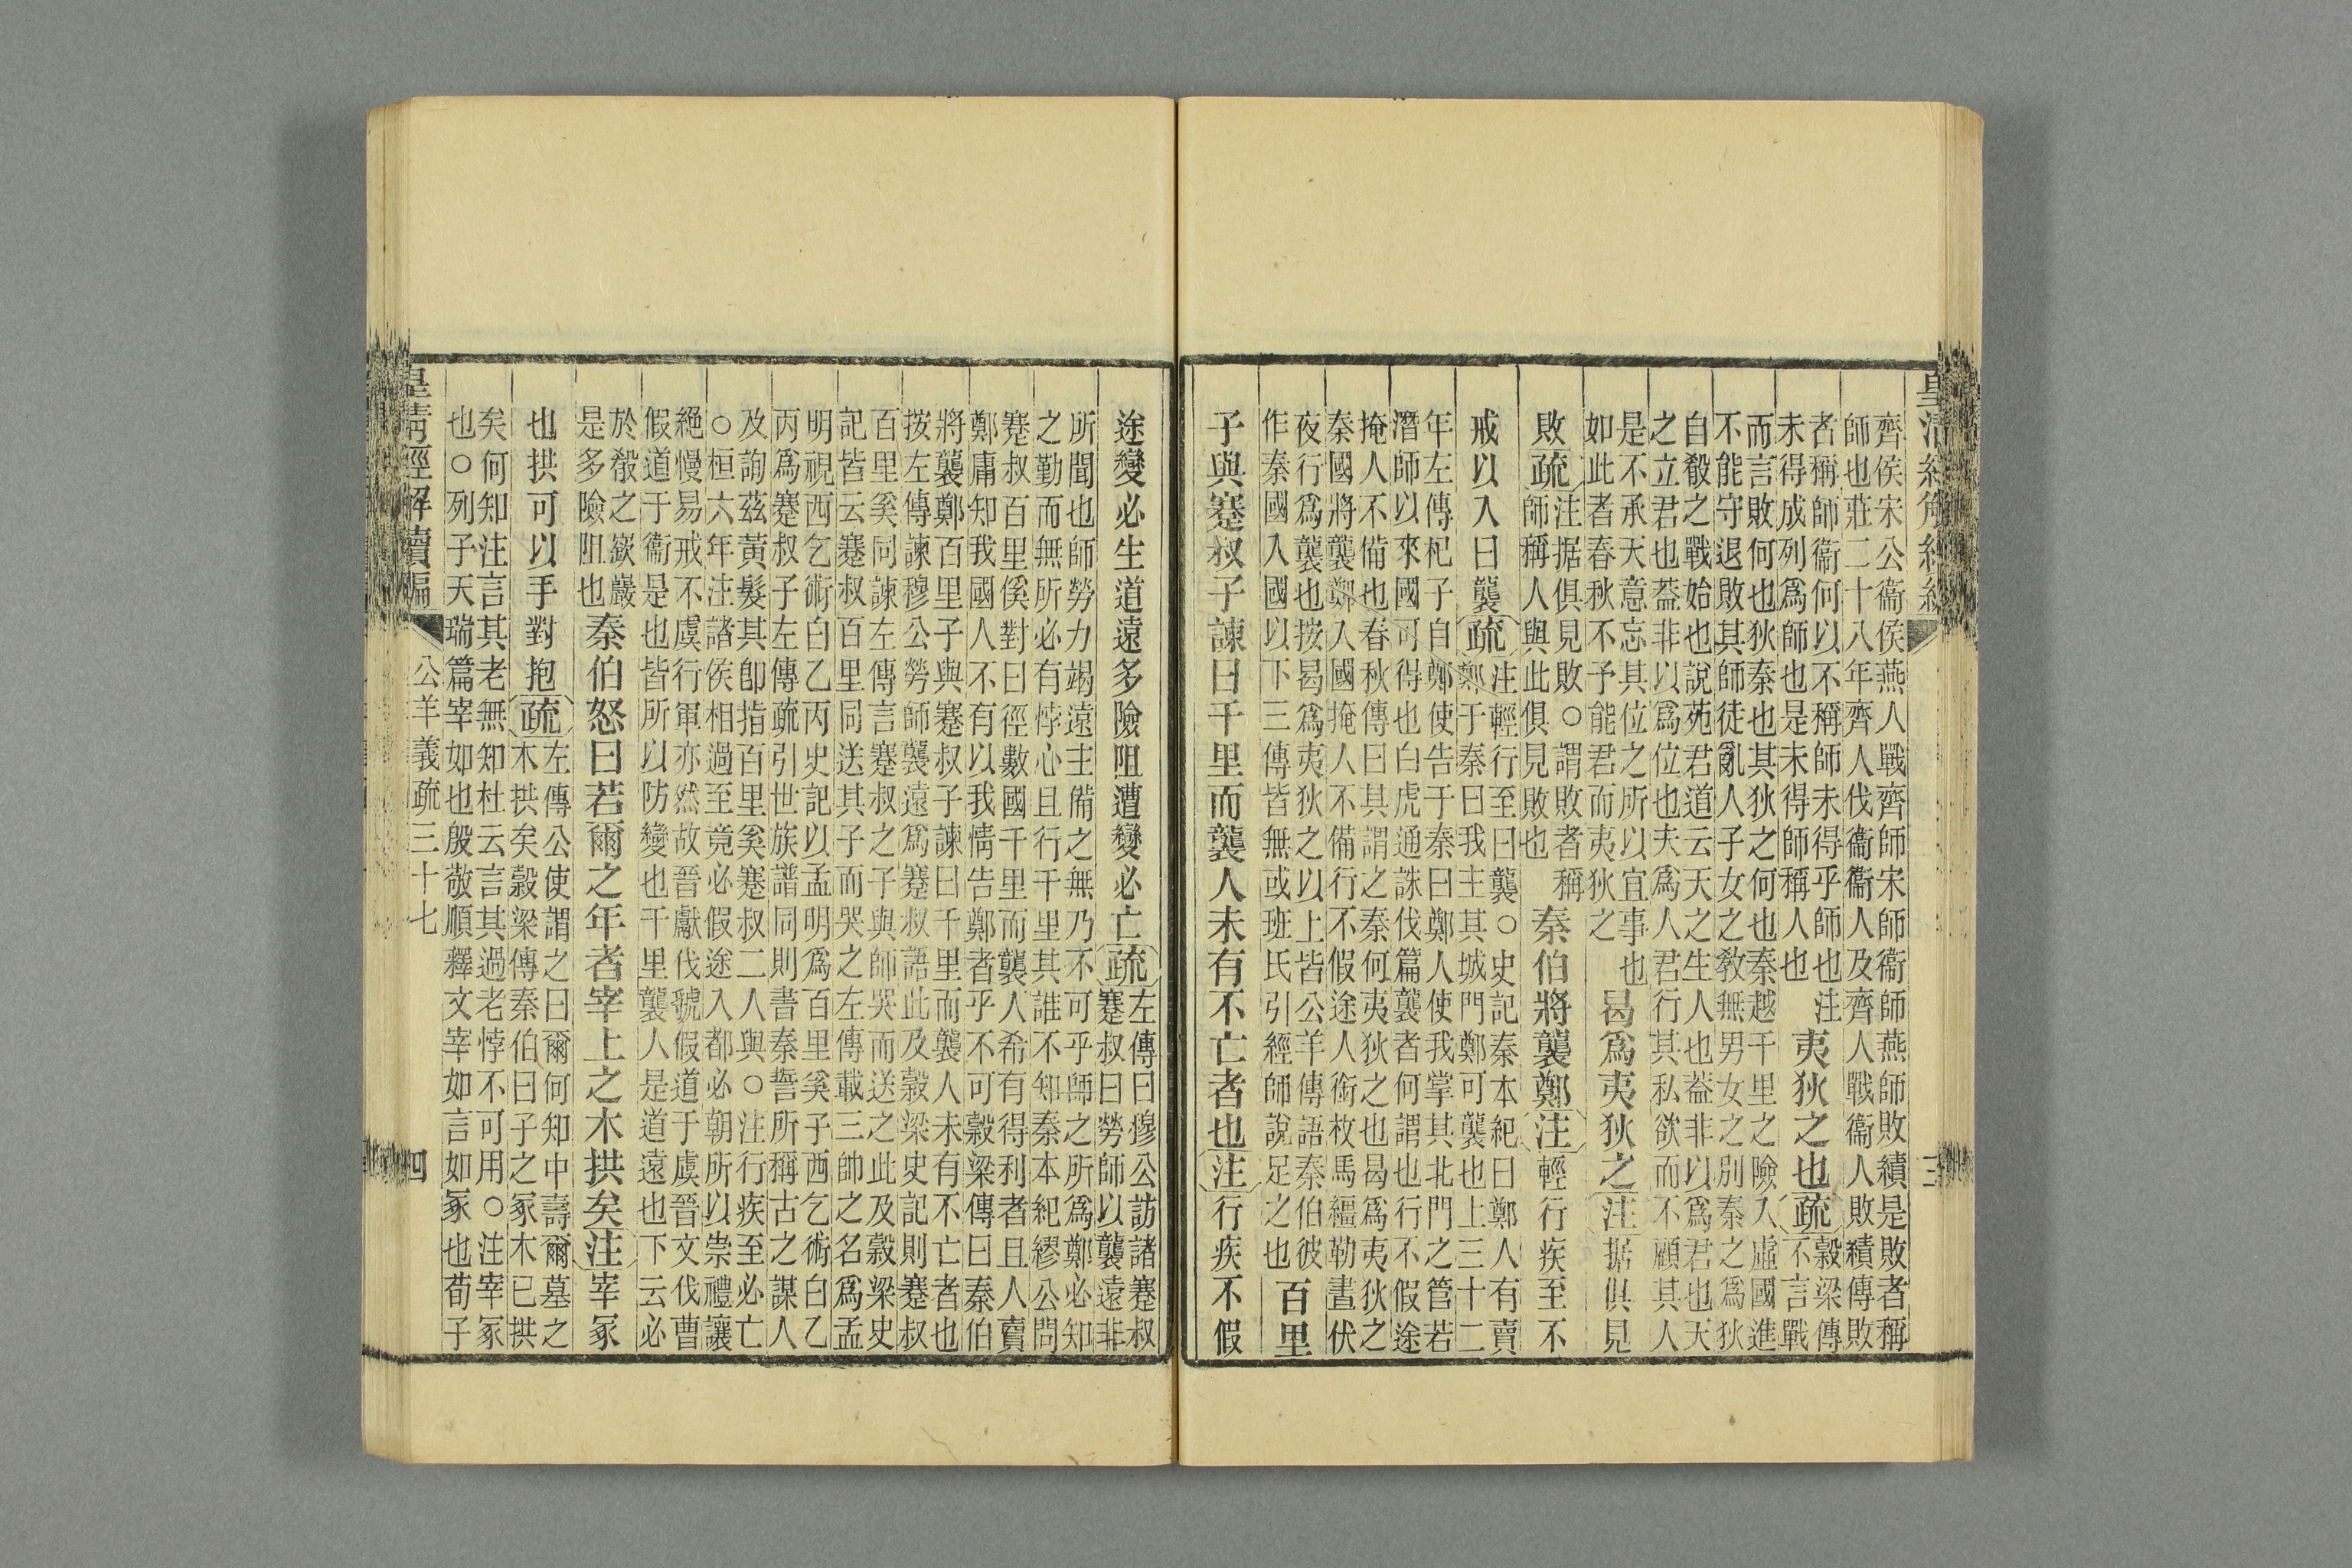 齊侯宋公衞侯燕人戰齊師宋師衞師燕師敗績是敗者稱
師也莊二十八年齊人伐衞衞人及齊人戰衞人敗績傳敗
者稱師衞何以不稱師未得乎師也注
未得成列爲師也是未得師稱人也
夷狄之也疏
穀梁傳
不言戰
而言敗何也狄秦也其狄之何也秦越千里之險入虛國進
不能守退敗其師徒亂人子女之敎無男女之別秦之爲狄
自殽之戰始也說苑君道云天之生人也葢非以爲君也天
之立君也葢非以爲位也夫爲人君行其私欲而不顧其人
是不承天意忘其位之所以宜事也
如此者春秋不予能君而夷狄之
曷爲夷狄之注
据俱見
敗疏
注据俱見敗○謂敗者稱
師稱人與此俱見敗也
秦伯將襲鄭注
輕行疾至不
戒以入曰襲疏
注輕行至曰襲○史記秦本紀曰鄭人有賣
鄭于秦曰我主其城門鄭可襲也上三十二
年左傳杞子自鄭使告于秦曰鄭人使我掌其北門之管若
潛師以來國可得也白虎通誅伐篇襲者何謂也行不假途
掩人不備也春秋傳曰其謂之秦何夷狄之也曷爲夷狄之
秦國將襲鄭入國掩人不備行不假途人銜枚馬繮勒晝伏
夜行爲襲也按曷爲夷狄之以上皆公羊傳語秦伯彼
作秦國入國以下三傳皆無或班氏引經師說足之也
百里
子與蹇叔子諫曰千里而襲人未有不亡者也注
行疾不假
途變必生道遠多險阻遭變必亡疏
左傳曰穆公訪諸蹇叔
蹇叔曰勞師以襲遠非
所聞也師勞力竭遠主備之無乃不可乎師之所爲鄭必知
之勤而無所必有悖心且行千里其誰不知秦本紀繆公問
蹇叔百里傒對曰徑數國千里而襲人希有得利者且人賣
鄭庸知我國人不有以我情告鄭者乎不可穀梁傳曰秦伯
將襲鄭百里子與蹇叔子諫曰千里而襲人未有不亡者也
按左傳諫穆公勞師襲遠爲蹇叔語此及穀梁史記則蹇叔
百里奚同諫左傳言蹇叔之子與師哭而送之此及穀梁史
記皆云蹇叔百里同送其子而哭之左傳載三帥之名爲孟
明視西乞術白乙丙史記以孟明爲百里奚子西乞術白乙
丙爲蹇叔子左傳疏引世族譜同則書秦誓所稱古之謀人
及詢茲黃髮其卽指百里奚蹇叔二人與○注行疾至必亡
○桓六年注諸侯相過至竟必假途入都必朝所以崇禮讓
絕慢易戒不虞行軍亦然故晉獻伐虢假道于虞晉文伐曹
假道于衞是也皆所以防變也千里襲人是道遠也下云必
於殽之嶔巖
是多險阻也
秦伯怒曰若爾之年者宰上之木拱矣注
宰冢
也拱可以手對抱疏
左傳公使謂之曰爾何知中壽爾墓之
木拱矣穀梁傳秦伯曰子之冢木已拱
矣何知注言其老無知杜云言其過老悖不可用○注宰冢
也○列子天瑞篇宰如也殷敬順釋文宰如言如冢也荀子
皇淸經解續編
公羊義疏三十七
四